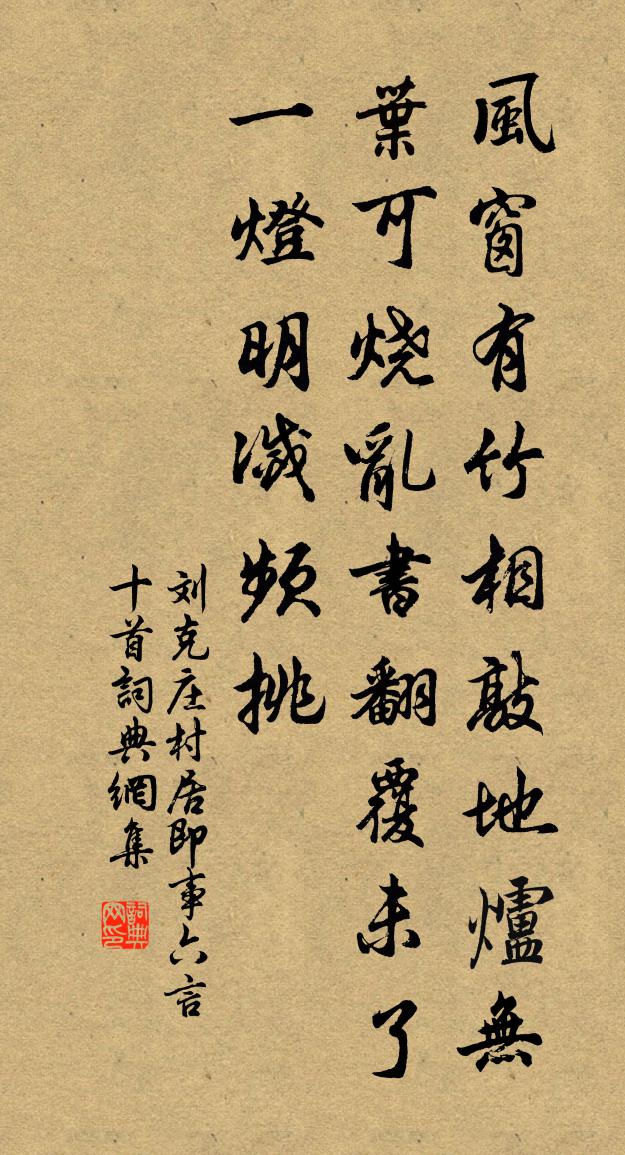 風窗有竹相敲地爐無
葉可烧亂書翻覆未了
一燈明滅頻挑
刘克庄村居即事六言
十首詞典網集
詞典网印